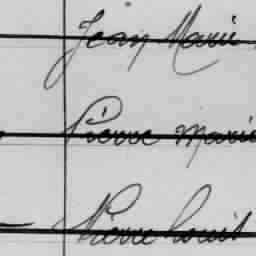 Jean Marie
Pierre Marie
Pierre Louis